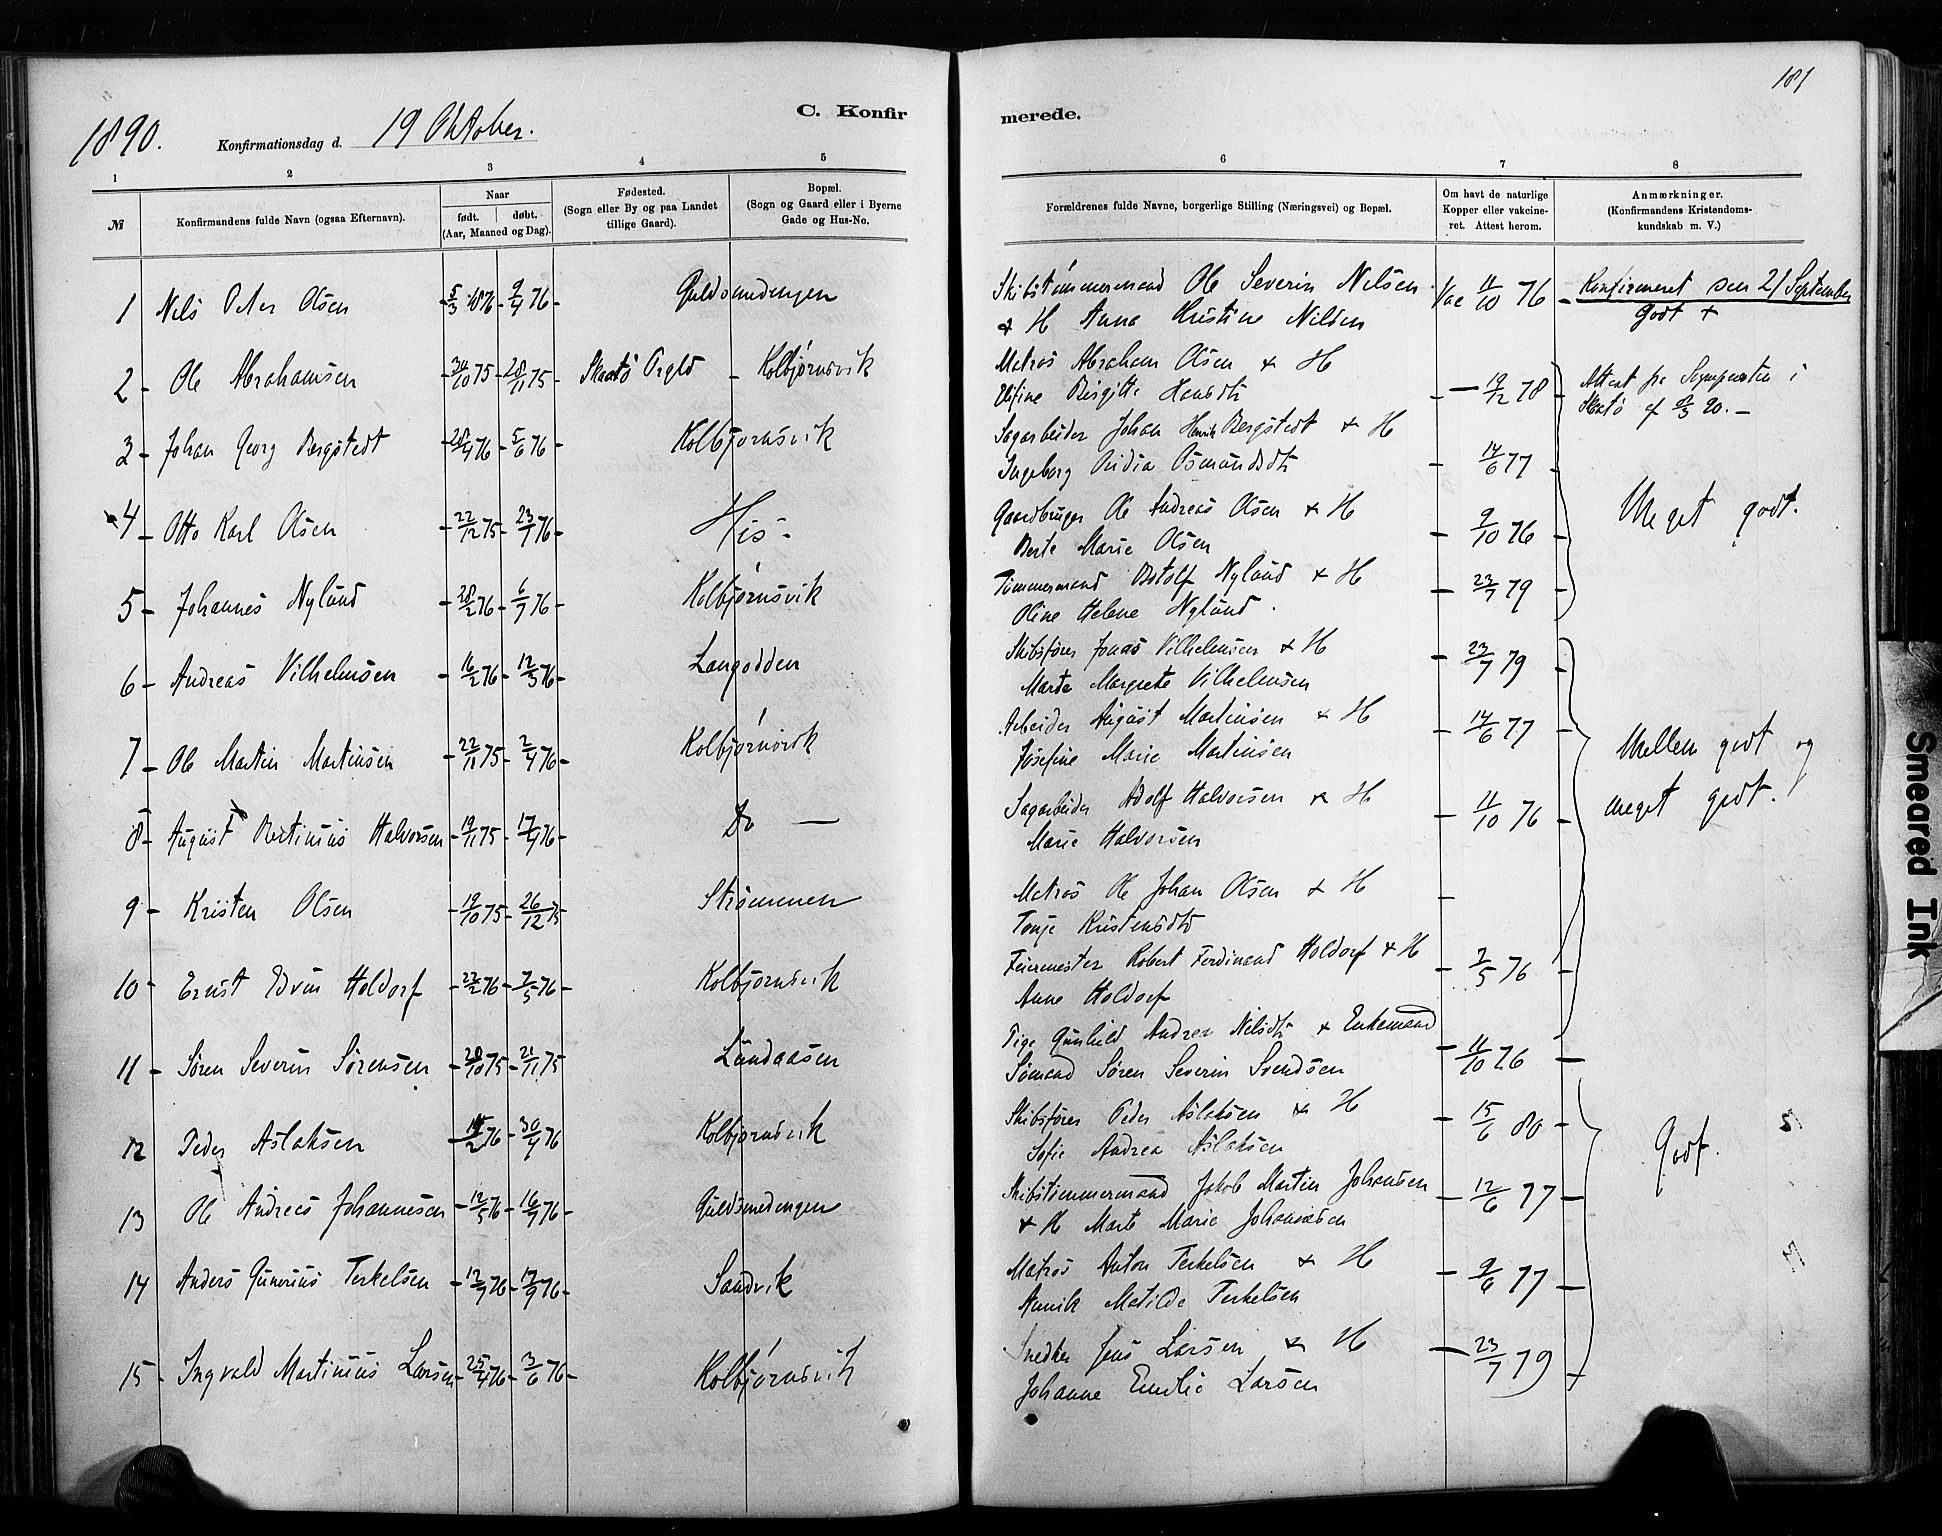 181
1890.
Konfirmationsdag d. 19 Oktober.
C. Konfir
merede.
1 2 3 4 5
6 7 8
№
Konfirmandens fulde Navn (ogsaa Efternavn).
Naar
født. døbt.
(Aar, Maaned og Dag).
Fødested.
(Sogn eller By og paa Landet
tillige Gaard).
Bopæl.
(Sogn og Gaard eller i Byerne
Gade og Hus-No.
Forældrenes fulde Navne, borgerlige Stilling (Næringsvei) og Bopæl.
Om havt de naturlige
Kopper eller vakcine-
ret. Attest herom.
Anmærkninger.
(Konfirmandens Kristendoms-
kundskab m. V.)
1 Nils Peter Olsen 5/3 1876 9/4 76 Guldsmedengen
Skibstømmermand Ole Severin Nilsen
& H Anna Kristine Nilsen
Vac 11/10 76
Konfirmeret den 21 September
Godt +
2 Ole Abrahamsen 30/10 75 28/11 75 Skaatø Prgld Kolbjørnsvik
Matros Abraham Olsen & H
Birgitte
19/12 78
Attest fra Sognepresten i
Skaatø af 90.
3 Johan Georg Bergstedt 28/4 76 5/6 76 Kolbjørnsvik
Sagarbeider Johan Henrik Bergstedt & H
Ingeborg Osmundsdtr
14/6 77
4 Otto Karl Olsen 22/12 75 23/1 76 His
Gaardbruger Ole Andreas Olsen & H
Berte Marie Olsen
9/10 76
Meget godt.
5 Johannes Nylund 28/2 76 6/7 76 Kolbjørnsvik
Tømmermand Botolf Nylund & H
Oline Helene Nylund
23/7 79
6 Andreas Vilhelmsen 16/2 76 12/3 76 Langodden
Skibsfører Jonas Vilhelmsen & H
Marte Margrete Vilhelmsen
23/7 79
7 Ole Martin Martinsen 22/11 75 2/4 76 Kolbjørnsvik
Arbeider August Martinsen & H
Josefine Marie Martinsen
14/6 77
Mellem godt og
meget godt.
8 August Bertinius Halvorsen 19/11 75 17/4 76 Do —
Sagarbeider Adolf Halvorsen & H
Marie Halvorsen
11/10 76
9 Kristen Olsen 19/10 75 26/12 75 Strømmen
Matros Ole Johan Olsen & H
Tonje Kristensdtr
10 Ernst Edvin Holdorf 22/2 76 7/5 76 Kolbjørnsvik
Feiermester Robert Ferdinand Holdorf & H
Anne Holdorf
2/5 76
11 Søren Severin Sørensen 28/10 75 21/11 75 Lundaasen
Pige Gunhild Andrea Nilsdtr & Enkemand
Sømand Søren Severin Svendsen
11/10 76
12 Peder Aslaksen 76 30/4 76 Kolbjørnsvik
Skibsfører Peder Aslaksen & H
Sofie Andrea Aslaksen
15/6 80
Godt.
13 Ole Andreas Johannesen 12/5 76 16/7 76 Guldsmedengen
Skibstømmermand Jakob Martin Johansen
& H Marte Marie Johannesen
12/6 77
14 Anders Gunerius Terkelsen 12/7 76 17/9 76 Sandvik
Matros Anton Terkelsen & H
Annik Matilde Terkelsen
9/6 77
15 Ingvald Martinius Larsen 25/4 76 3/6 76 Kolbjørnsvik
Snedker Jens Larsen & H
Johanne Emilie Larsen
23/7 79
Smeared Ink